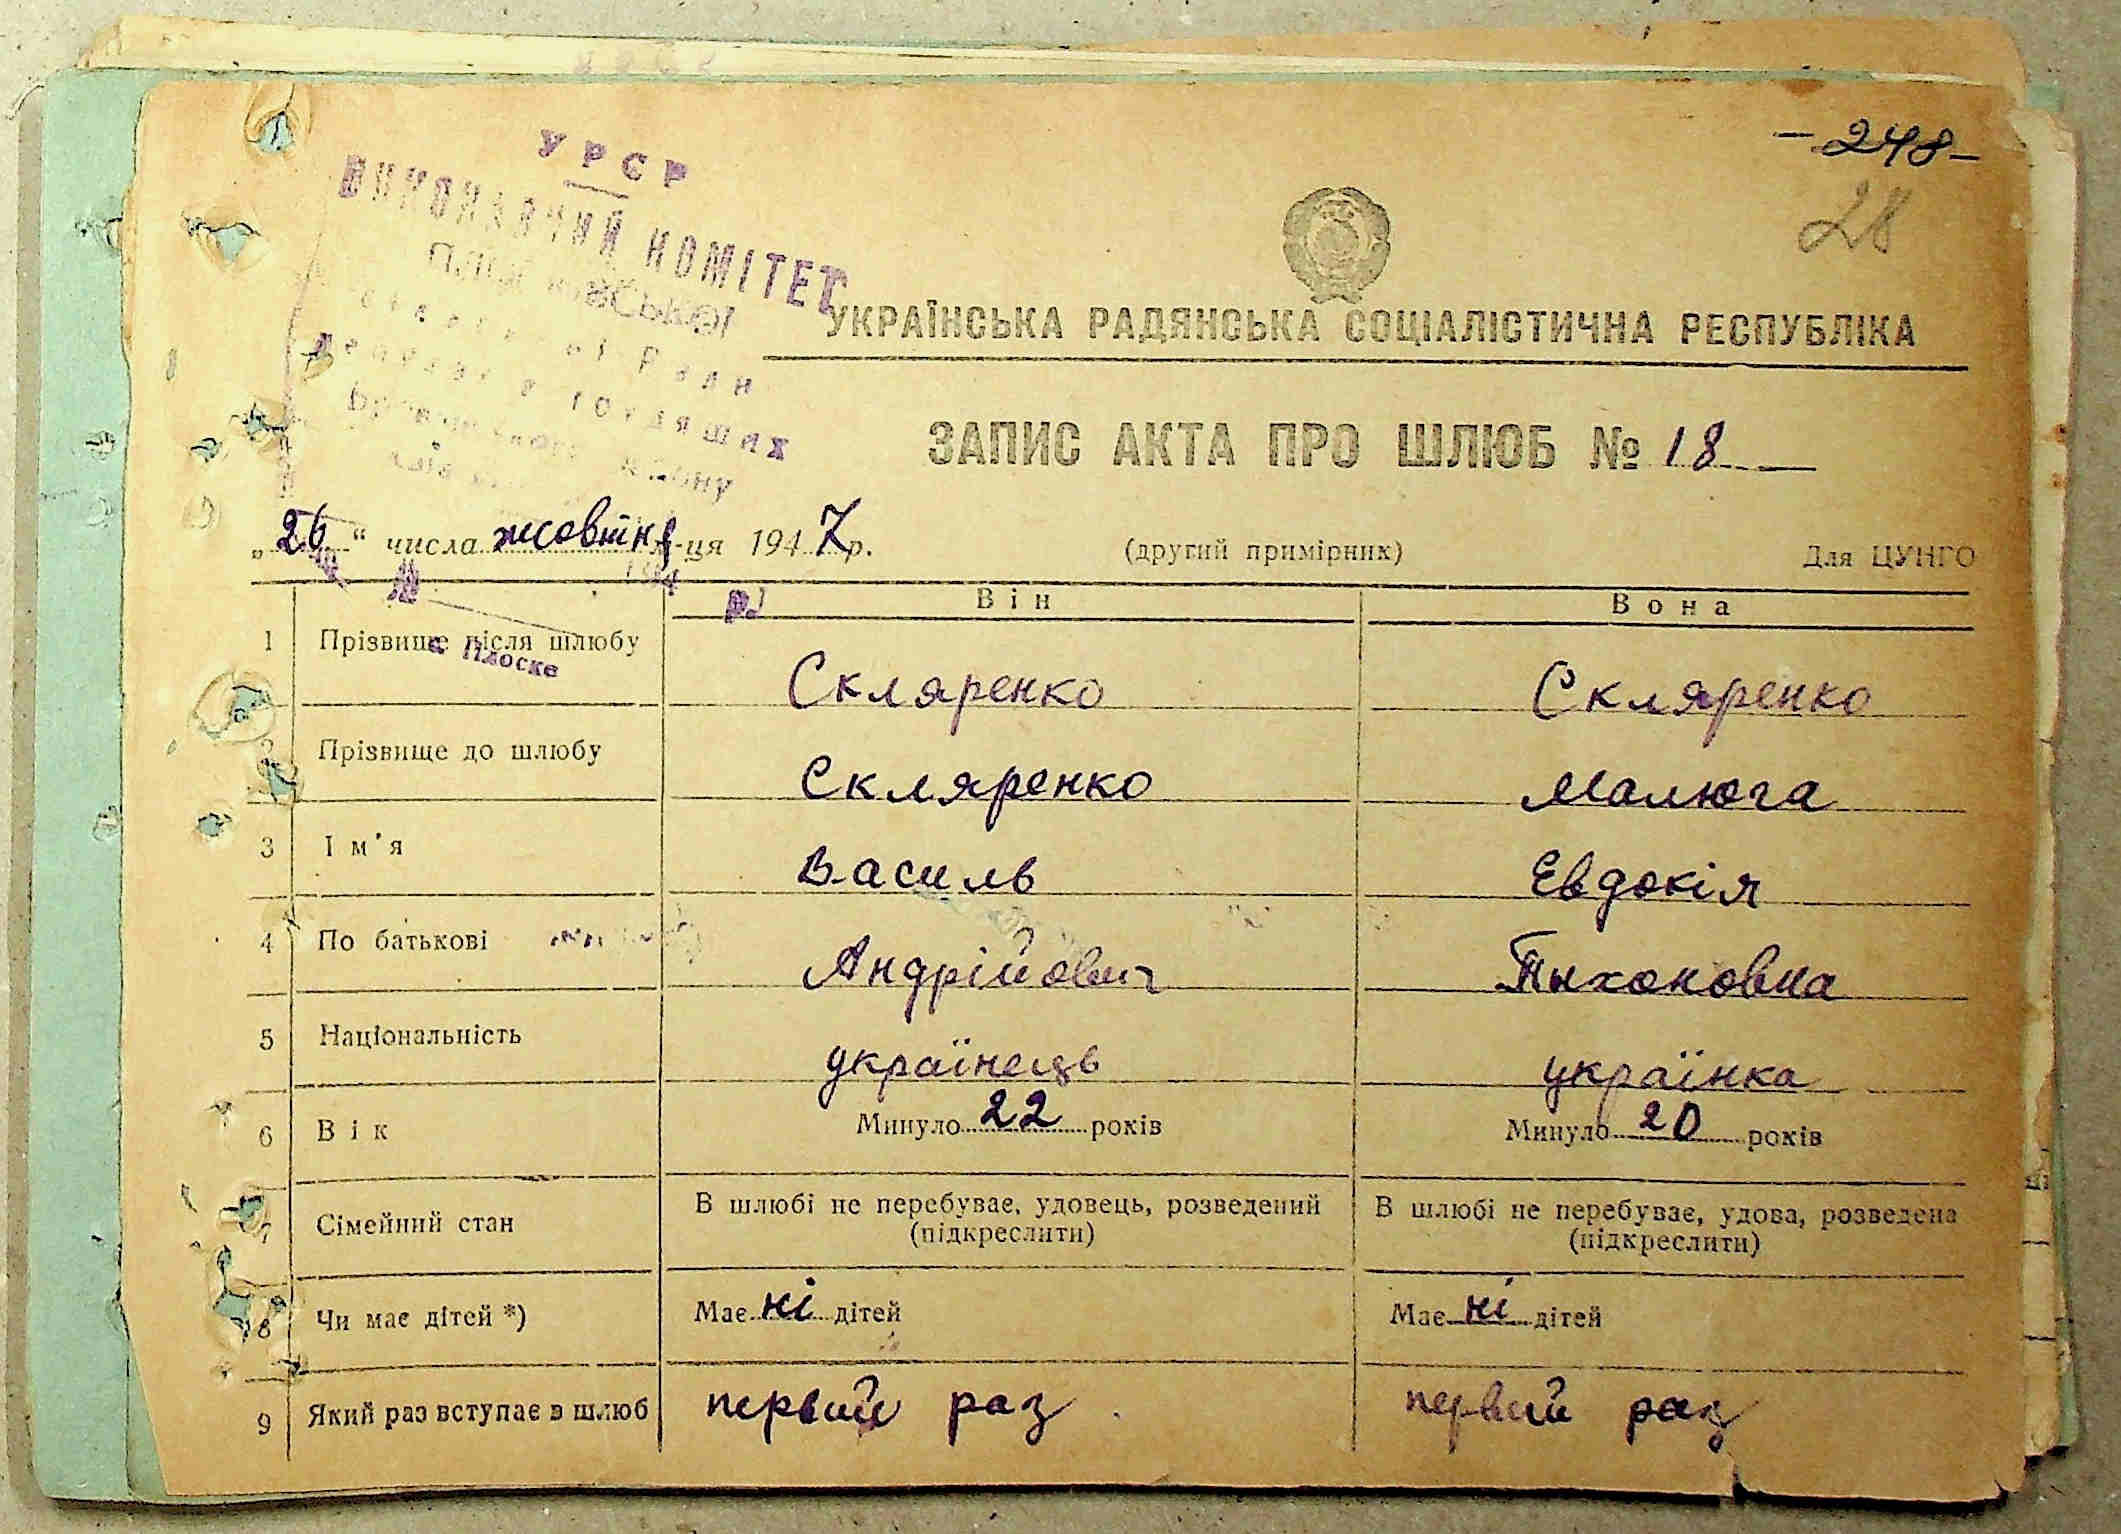 -248-
28
УРСР
ВИКОНАВЧИЙ КОМІТЕТ
Ради
депутатів трудящих
району
с Плоске
УКРАЇНСЬКА РАДЯНСЬКА СОЦІАЛІСТИЧНА РЕСПУБЛІКА
ЗАПИС АКТА ПРО ШЛЮБ № 18
„26“ числа жовтня м-ця 1947 р. (другий примірник) Для ЦУНГО
Він Вона
1 Прізвище після шлюбу Скляренко Скляренко
2 Прізвище до шлюбу Скляренко Малюга
3 Ім'я Василь Евдокія
4 По батькові Андрійович Тыхоновна
5 Національність українець українка
6 Вік Минуло 22 років Минуло 20 років
7 Сімейний стан В шлюбі не перебуває, удовець, розведений В шлюбі не перебуває, удова, розведена
(підкреслити) (підкреслити)
8 Чи має дітей *) Має ні дітей Має ні дітей
9 Який раз вступає в шлюб первий раз первий раз